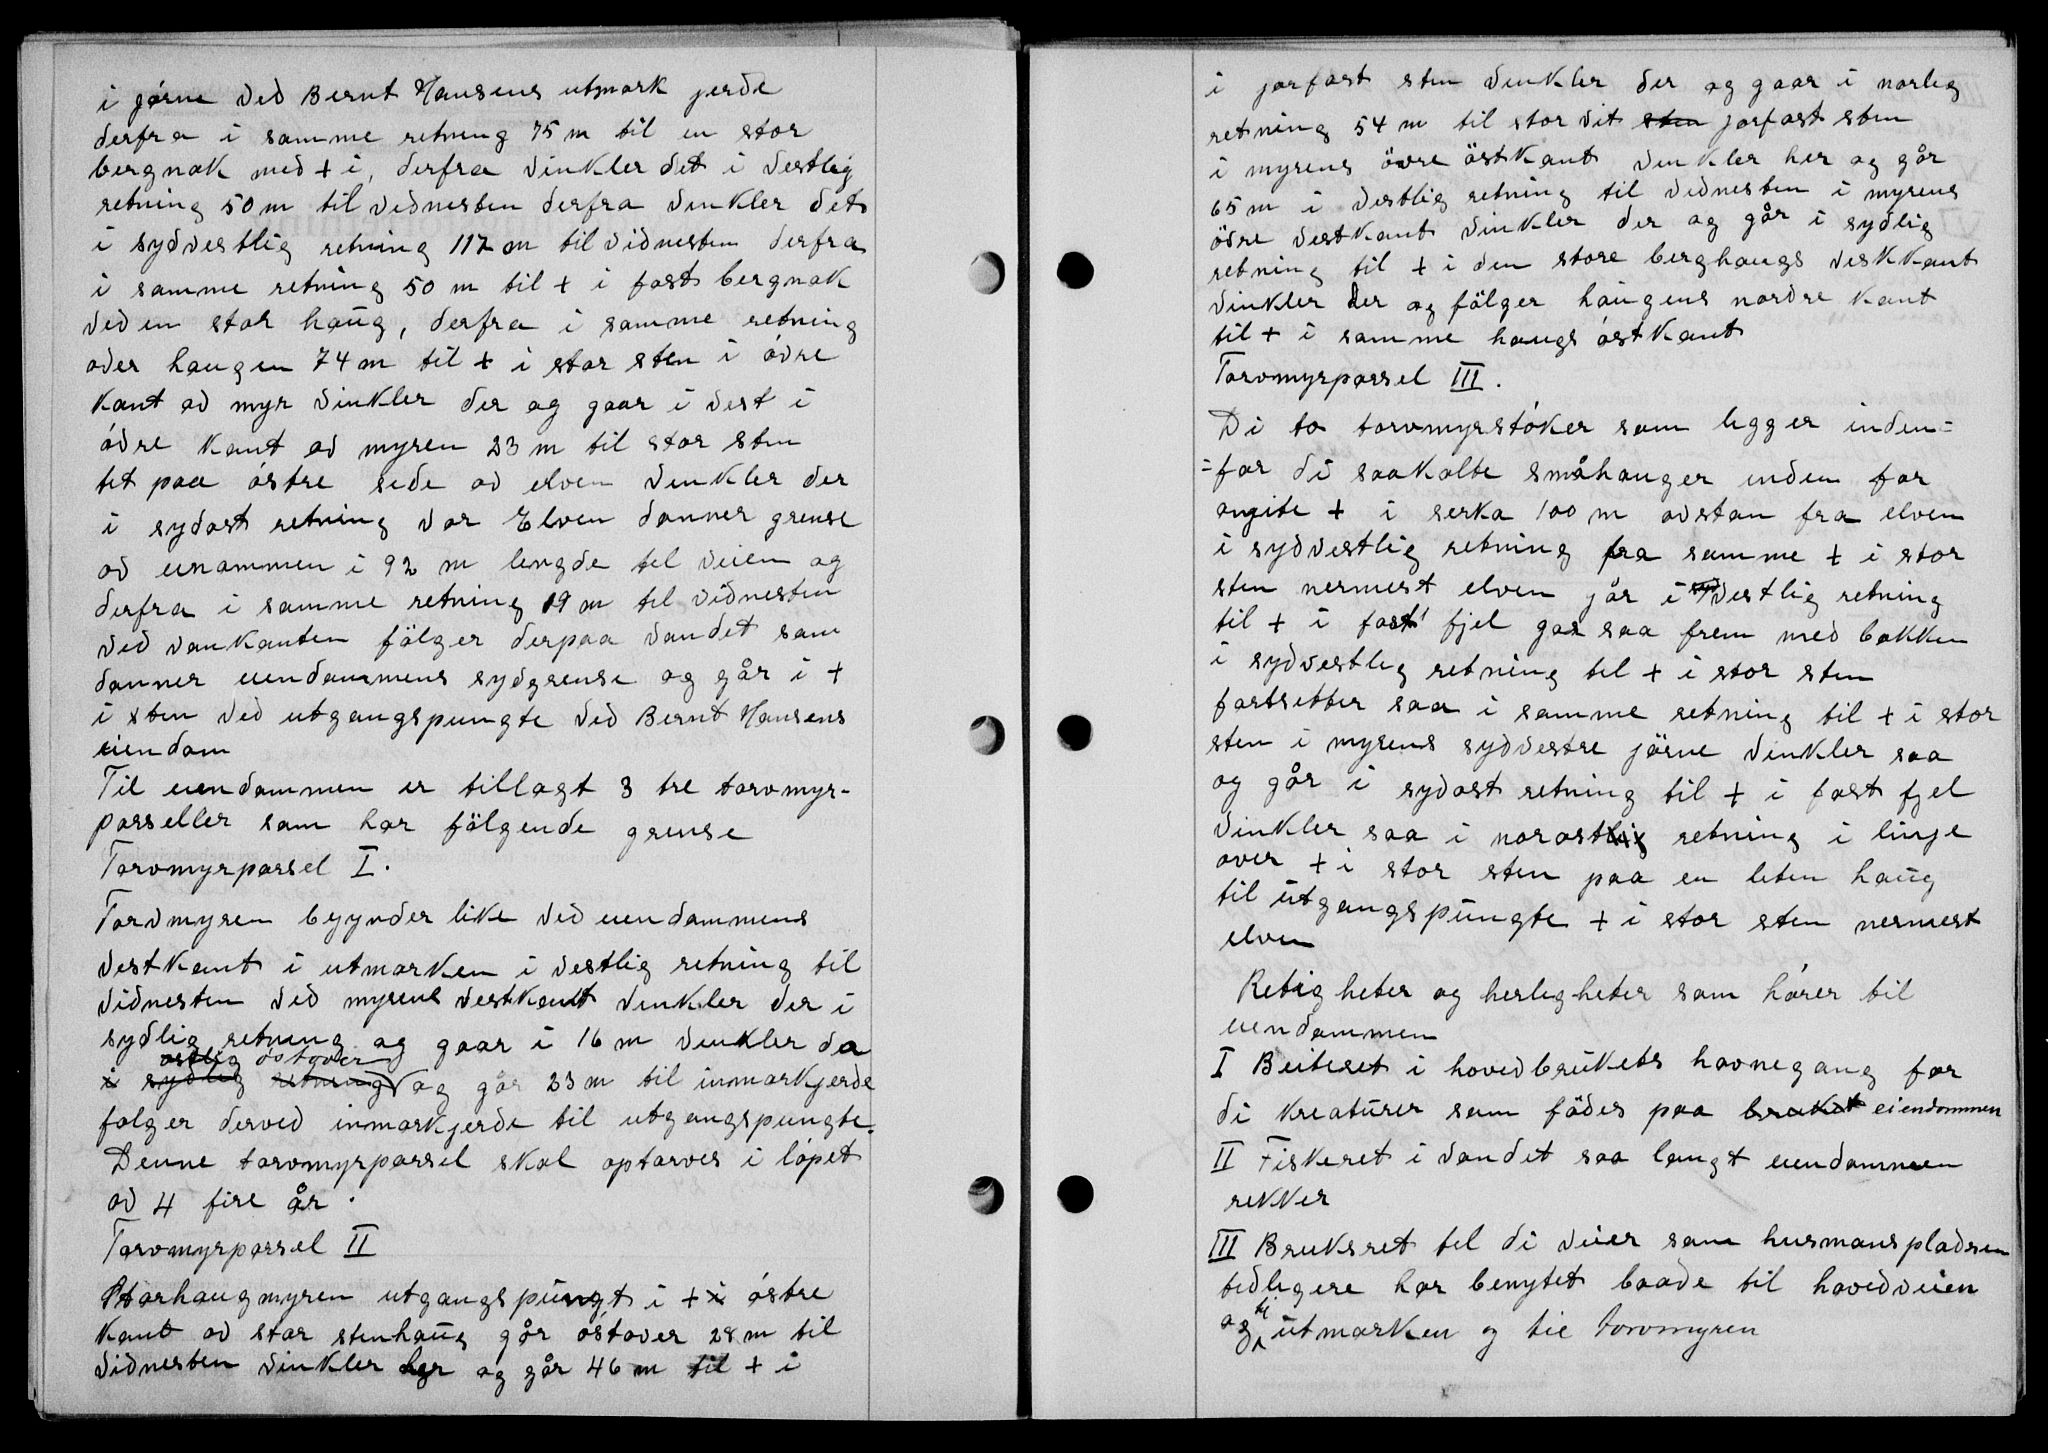 i jörne ved Bernt Hansens utmark jerde
derfra i samme retning 75 m til en stor
bergnak med + i, derfra vinkler det i vestlig
retning 50 m til vidnesten derfra vinkler det
i sydvestlig retning 117 m til vidnesten derfra
i samme retning 50 m til + i fast bergnak
ved en stor haug, derfra i samme retning
over haugen 74 m til + i stor sten i övre
kant av myr vinkler der og gaar i vest i
övre kant av myren 23 m til stor sten
tet paa östre side av elven vinkler der
i sydost retning vor Elven danner grense
av einammen i 92 m lengde til veien og
derfra i samme retning 19 m til vidnesten
ved vankanten fölger derpaa vandet som
danner eiendammens sydgrense og går i +
i sten ved utgangspungte ved Bernt Hansens
eiendom
Til eiendammen er tillagt 3 tre torvmyr-
parseller som har fölgende grense
Torvmyrparsel I.
Torvmyren begynder like ved eiendammens
vestkant i utmarken i vestlig retning til
vidnesten ved myrens vestkant vinkler der i
sydlig retning og gaar i 16 m vinkler da
ostlig östover
i sydlig retning og går 23 m til inmarkjerde
folger derved inmarkjerde til utgangspungte.
Denne torvmyrparsel skal optorves i löpet
av 4 fire år.
Torvmyrparsel II
Storhaugmyren utgangspungt i + i östre
kant av stor stenhaug går östover 28 m til
vidnesten vinkler her og går 46 m til + i
i jorfast sten vinkler der og gaar i norlig
retning 54 m til stor vit sten jorfast sten
i myrens övre östkant vinkler her og går
65 m i vestlig retning til vidnesten i myrens
övre vestkant vinkler der og går i sydlig
retning til + i den store berghaugs veskkant
vinkler der og fölger haugens nordre kant
til + i samme haugs östkant
Torvmyrparsel III.
Di to torvmyrstöker som ligger inden=
=for di saakalte småhauger inden for
angite + i serka 100 m avstan fra elven
i sydvestlig retning fra samme + i stor
sten nermest elven går i syd vestlig retning
til + i fast fjel gaa saa frem med bakken
i sydvestlig retning til + i stor sten
fortsetter saa i samme retning til + i stor
sten i myrens sydvestre jörne vinkler saa
og går i sydost retning til + i fast fjel
vinkler saa i norostlig retning i linje
over + i stor sten paa en liten haug
til utgangspungte + i stor sten nermest
elven
Retigheter og herligheter som hörer til
eiendammen
I Beiteret i hovedbrukets havnegang for
di kreaturer som födes paa bruket eiendommen
II Fiskeret i vandet saa langt eiendammen
rekker
III Bruksret til di veier som husmansplassen
tidligere har benytet baade til hovedveien
og til utmarken og til torvmyren